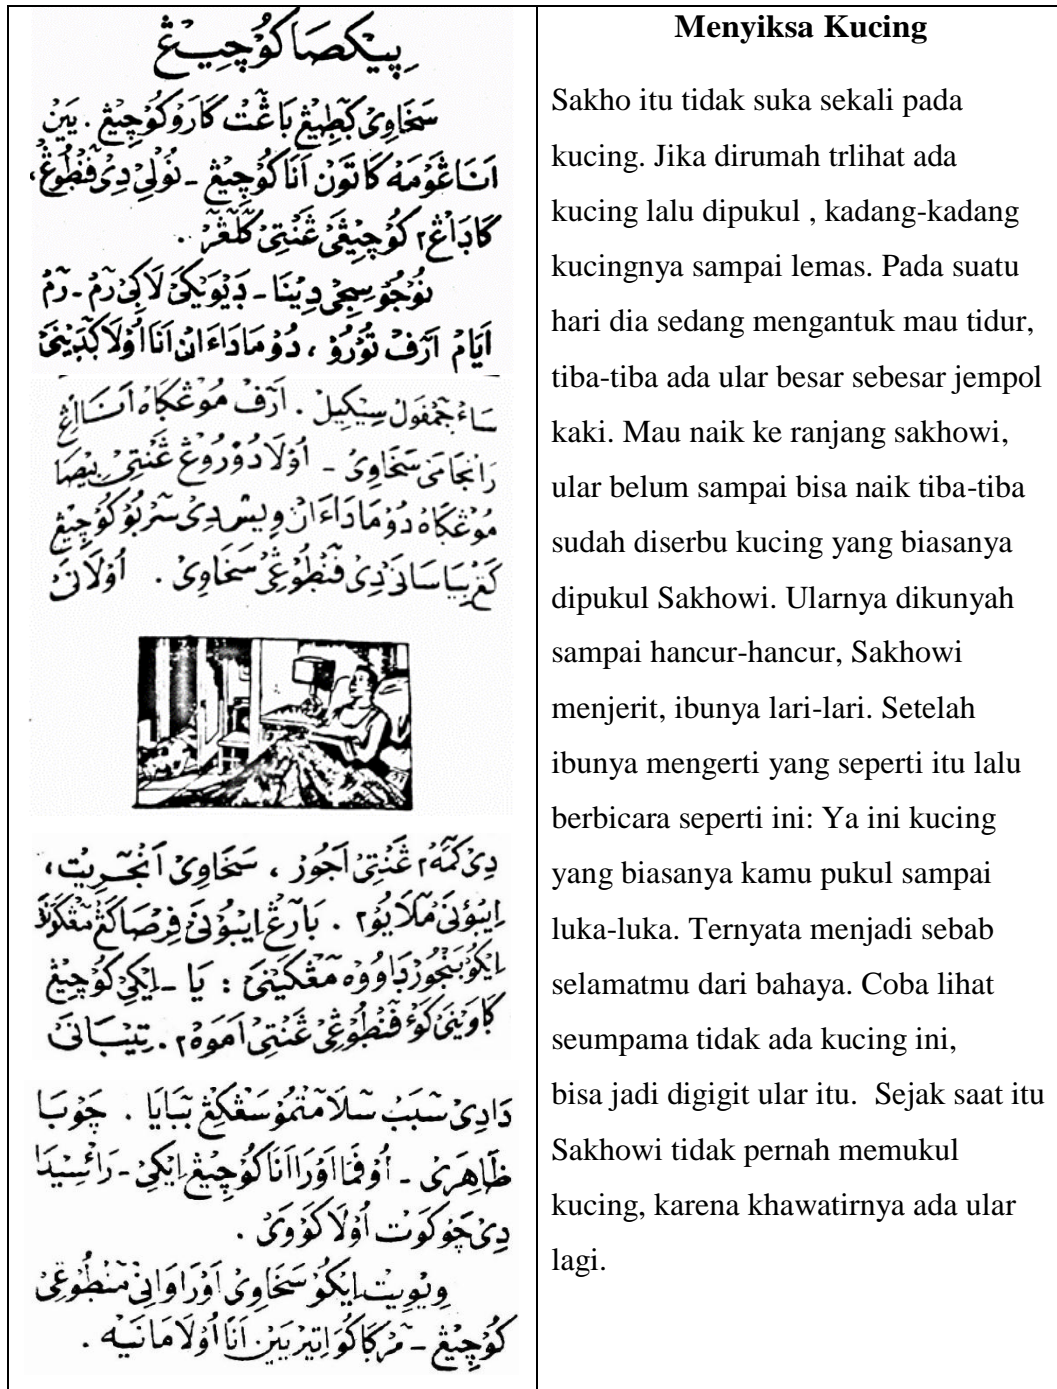 ڮيۑيكصا كوچيڠ
سخاوي كۤطيڠ باڠۤت كارو كوچيڠ. يين
انا ڠومه كاتون انا كوچيڠ - نولي دي فنطوڠ،
كاداڠ٢ كوچيڠى ڠنتي كلۤڠۤر.
نوجو سجي دينا - ديويكى لاكي رۤم - رۤم
ايام ارۤف تورو، دوماداءان انا اولا كدينى
ساء جمفول سيكيل. ارۤف موڠكاه انا اڠ
رانجاى سخاوي - اولا دوروڠ ڠنتي بيصا
موڠكاه دومادءان ويس دي سربو كوچيڠ
كڠ بياسانى دي فنطوڠي سخاوي. اولانى
دي كمه٢ ڠنتي اجور، سخاوي انجۤريت،
ايبونى ملايو٢. بارڠ ايبونى فرصا كڠ مڠكونو
ايكو بنجور داووه مڠكينى: يا - ايكي كوچيڠ
كاوينى كوء فنطوڠي ڠنتي اموه٢. تيبانى
دادي سبب سلامتمو سڠكڠ ببايا. چوبا
ظاهرى - اوفما اورا انا كوچيڠ ايكي - رائسيدا
دي چوكوت اولا كووى.
ويويت ايكو سخاوي اورا واني منطوڠي
كوچيڠ - مركا كواتير يين انا اولا مانيه.
Menyiksa Kucing
Sakho itu tidak suka sekali pada
kucing. Jika dirumah trlihat ada
kucing lalu dipukul , kadang-kadang
kucingnya sampai lemas. Pada suatu
hari dia sedang mengantuk mau tidur,
tiba-tiba ada ular besar sebesar jempol
kaki. Mau naik ke ranjang sakhowi,
ular belum sampai bisa naik tiba-tiba
sudah diserbu kucing yang biasanya
dipukul Sakhowi. Ularnya dikunyah
sampai hancur-hancur, Sakhowi
menjerit, ibunya lari-lari. Setelah
ibunya mengerti yang seperti itu lalu
berbicara seperti ini: Ya ini kucing
yang biasanya kamu pukul sampai
luka-luka. Ternyata menjadi sebab
selamatmu dari bahaya. Coba lihat
seumpama tidak ada kucing ini,
bisa jadi digigit ular itu.  Sejak saat itu
Sakhowi tidak pernah memukul
kucing, karena khawatirnya ada ular
lagi.